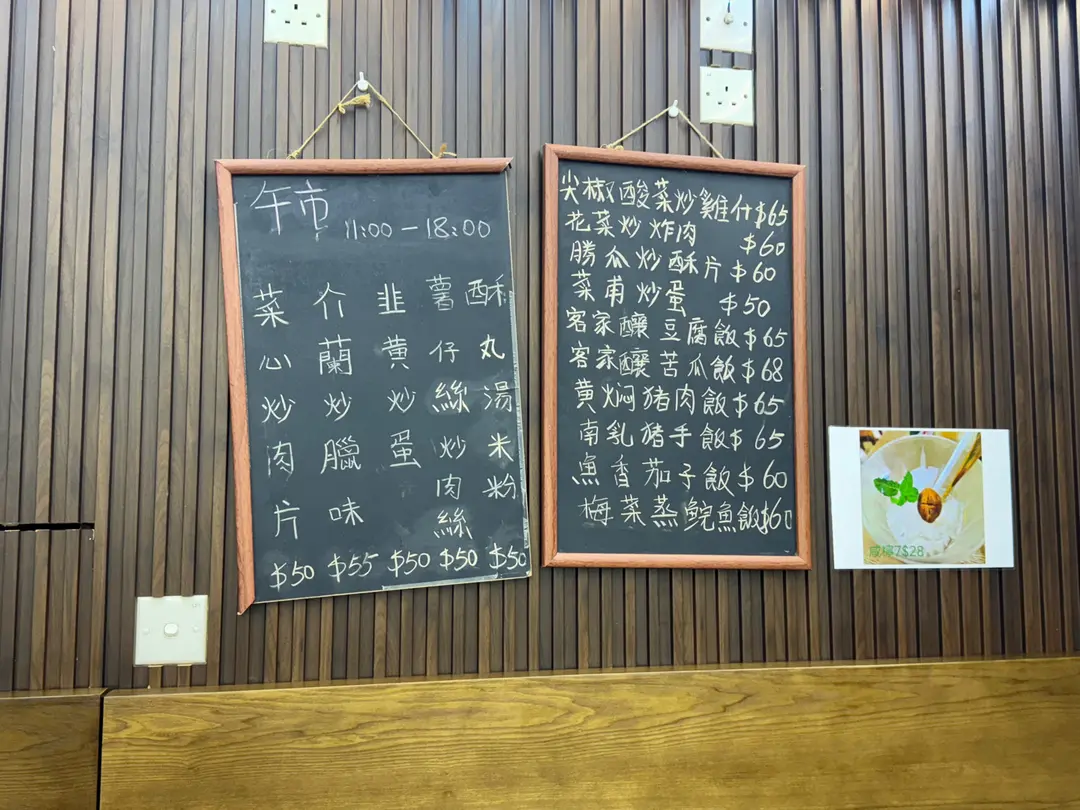 午市
11:00 - 18:00
菜心炒肉片 $50
介蘭炒臘味 $55
韭黃炒蛋 $50
薯仔絲炒肉絲 $50
酥丸湯米粉 $50
尖椒酸菜炒雞什 $65
花菜炒炸肉 $60
勝瓜炒酥片 $60
菜甫炒蛋 $50
客家釀豆腐飯 $65
客家釀苦瓜飯 $68
黄焖猪肉飯 $65
南乳猪手飯 $65
魚香茄子飯 $60
梅菜蒸鯇魚飯 $60
咸檸7$28